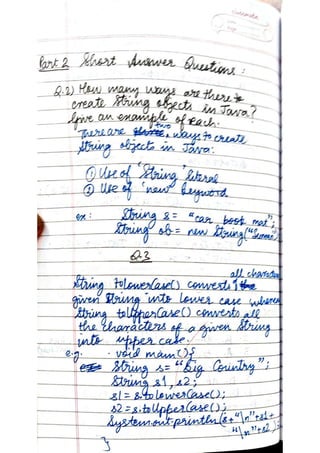 classmate
Part 2 Short Answer Questions :
Q.2) How many ways are there to
create String objects in Java?
Give an example of each.
There are two ways to create
String objects in Java:
① Use of 'String' literal
② Use of 'new' keyword
ex: String s = "car book mat";
String ob = new String("
Q.3
all characters
String toLowerCase() converts the
given String into lower case whereas
String toUpperCase() converts all
the characters of a given String
into upper case.
e.g. void main(){
String s= "Big Country";
String s1, s2;
s1 = s.toLowerCase();
s2 = s.toUpperCase();
System.out.println(s+"\n"+s1+
"\n"+s2);
}